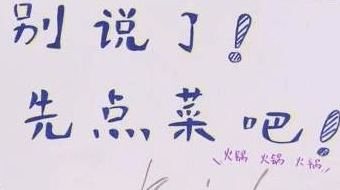 别说了!
先点菜吧!
火锅 火锅 火锅